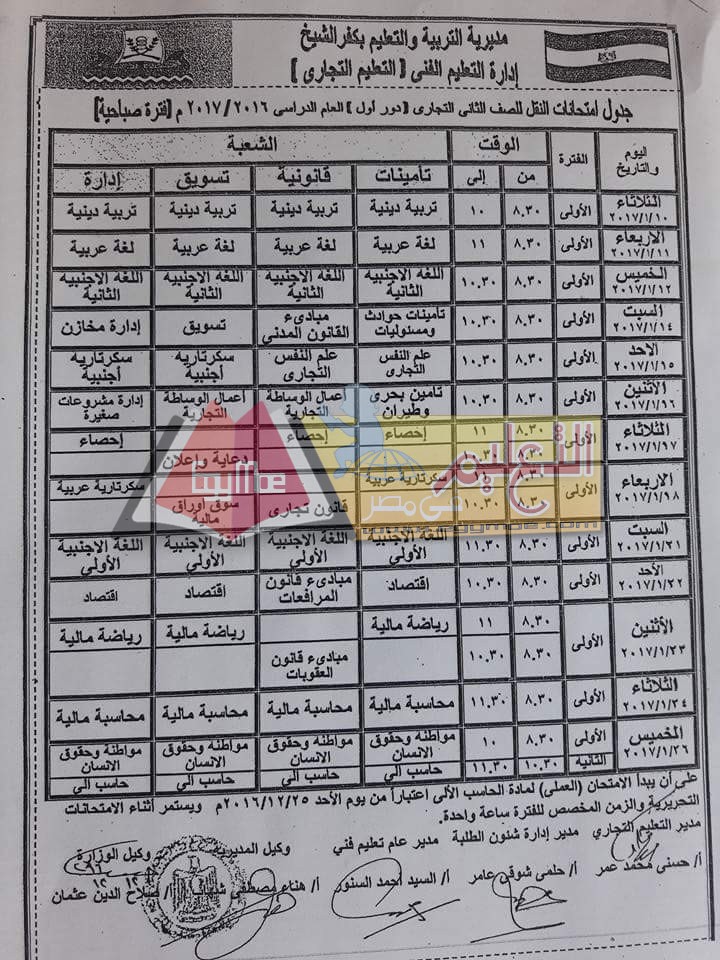 مديرية التربية والتعليم بكفرالشيخ
إدارة التعليم الفنى ( التعليم التجارى )
جدول امتحانات النقل للصف الثانى التجارى ( دور أول ) العام الدراسى ٢٠١٦/ ٢٠١٧ م [فترة صباحية]
اليوم والتاريخ الفترة الوقت الشعبة
من إلى تأمينات قانونية تسويق إدارة
الثلاثاء ٢٠١٧/١/١٠ الأولى ٨.٣٠ ١٠ تربية دينية تربية دينية تربية دينية تربية دينية
الاربعاء ٢٠١٧/١/١١ الأولى ٨.٣٠ ١١ لغة عربية لغة عربية لغة عربية لغة عربية
الخميس ٢٠١٧/١/١٢ الأولى ٨.٣٠ ١٠.٣٠ اللغه الاجنبيه الثانية اللغه الاجنبيه الثانية اللغه الاجنبيه الثانية اللغه الاجنبيه الثانية
السبت ٢٠١٧/١/١٤ الأولى ٨.٣٠ ١٠.٣٠ تأمينات حوادث ومسئوليات مبادىء القانون المدنى تسويق إدارة مخازن
الاحد ٢٠١٧/١/١٥ الأولى ٨.٣٠ ١٠.٣٠ علم النفس التجارى علم النفس التجارى سكرتاريه أجنبية سكرتاريه أجنبية
الاثنين ٢٠١٧/١/١٦ الأولى ٨.٣٠ ١٠.٣٠ تأمين بحرى وطيران أعمال الوساطة التجارية أعمال الوساطة التجارية إدارة مشروعات صغيرة
الثلاثاء ٢٠١٧/١/١٧ الأولى ٨.٣٠ ١١ إحصاء إحصاء إحصاء إحصاء
٨.٣٠ ١٠.٣٠ دعاية وإعلان
الاربعاء ٢٠١٧/١/١٨ الأولى ٨.٣٠ سكرتارية عربية سكرتارية عربية
٨.٣٠ ١٠.٣٠ قانون تجارى سوق أوراق مالية
السبت ٢٠١٧/١/٢١ الأولى ٨.٣٠ ١١.٣٠ اللغة الاجنبية الأولي اللغة الاجنبية الأولي اللغة الاجنبية الأولي اللغة الاجنبية الأولي
الأحد ٢٠١٧/١/٢٢ الأولى ٨.٣٠ ١٠.٣٠ اقتصاد مبادىء قانون المرافعات اقتصاد اقتصاد
الأثنين ٢٠١٧/١/٢٣ الأولى ٨.٣٠ ١١ رياضة مالية رياضة مالية رياضة مالية
٨.٣٠ ١٠.٣٠ مبادىء قانون العقوبات
الثلاثاء ٢٠١٧/١/٢٤ الأولى ٨.٣٠ ١١.٣٠ محاسبة مالية محاسبة مالية محاسبة مالية محاسبة مالية
الخميس ٢٠١٧/١/٢٦ الأولى ٨.٣٠ ١٠ مواطنة وحقوق الانسان مواطنة وحقوق الانسان مواطنة وحقوق الانسان مواطنة وحقوق الانسان
الثانية ١٠.٣٠ ١١.٣٠ حاسب الي حاسب الي حاسب الي حاسب الي
على أن يبدأ الامتحان (العملى) لمادة الحاسب الألى اعتباراً من يوم الأحد ٢٠١٦/١٢/٢٥م ويستمر أثناء الامتحانات
التحريرية والزمن المخصص للفترة ساعة واحدة.
مدير التعليم التجاري مدير إدارة شئون الطلبة مدير عام تعليم فني وكيل المديرية وكيل الوزارة
أ/ حسنى محمد عمر أ/ حلمى شوقى عامر أ/ السيد أحمد السنور أ/ هناء مصطفى أ/ صلاح الدين عثمان
التعليم
فى مصر